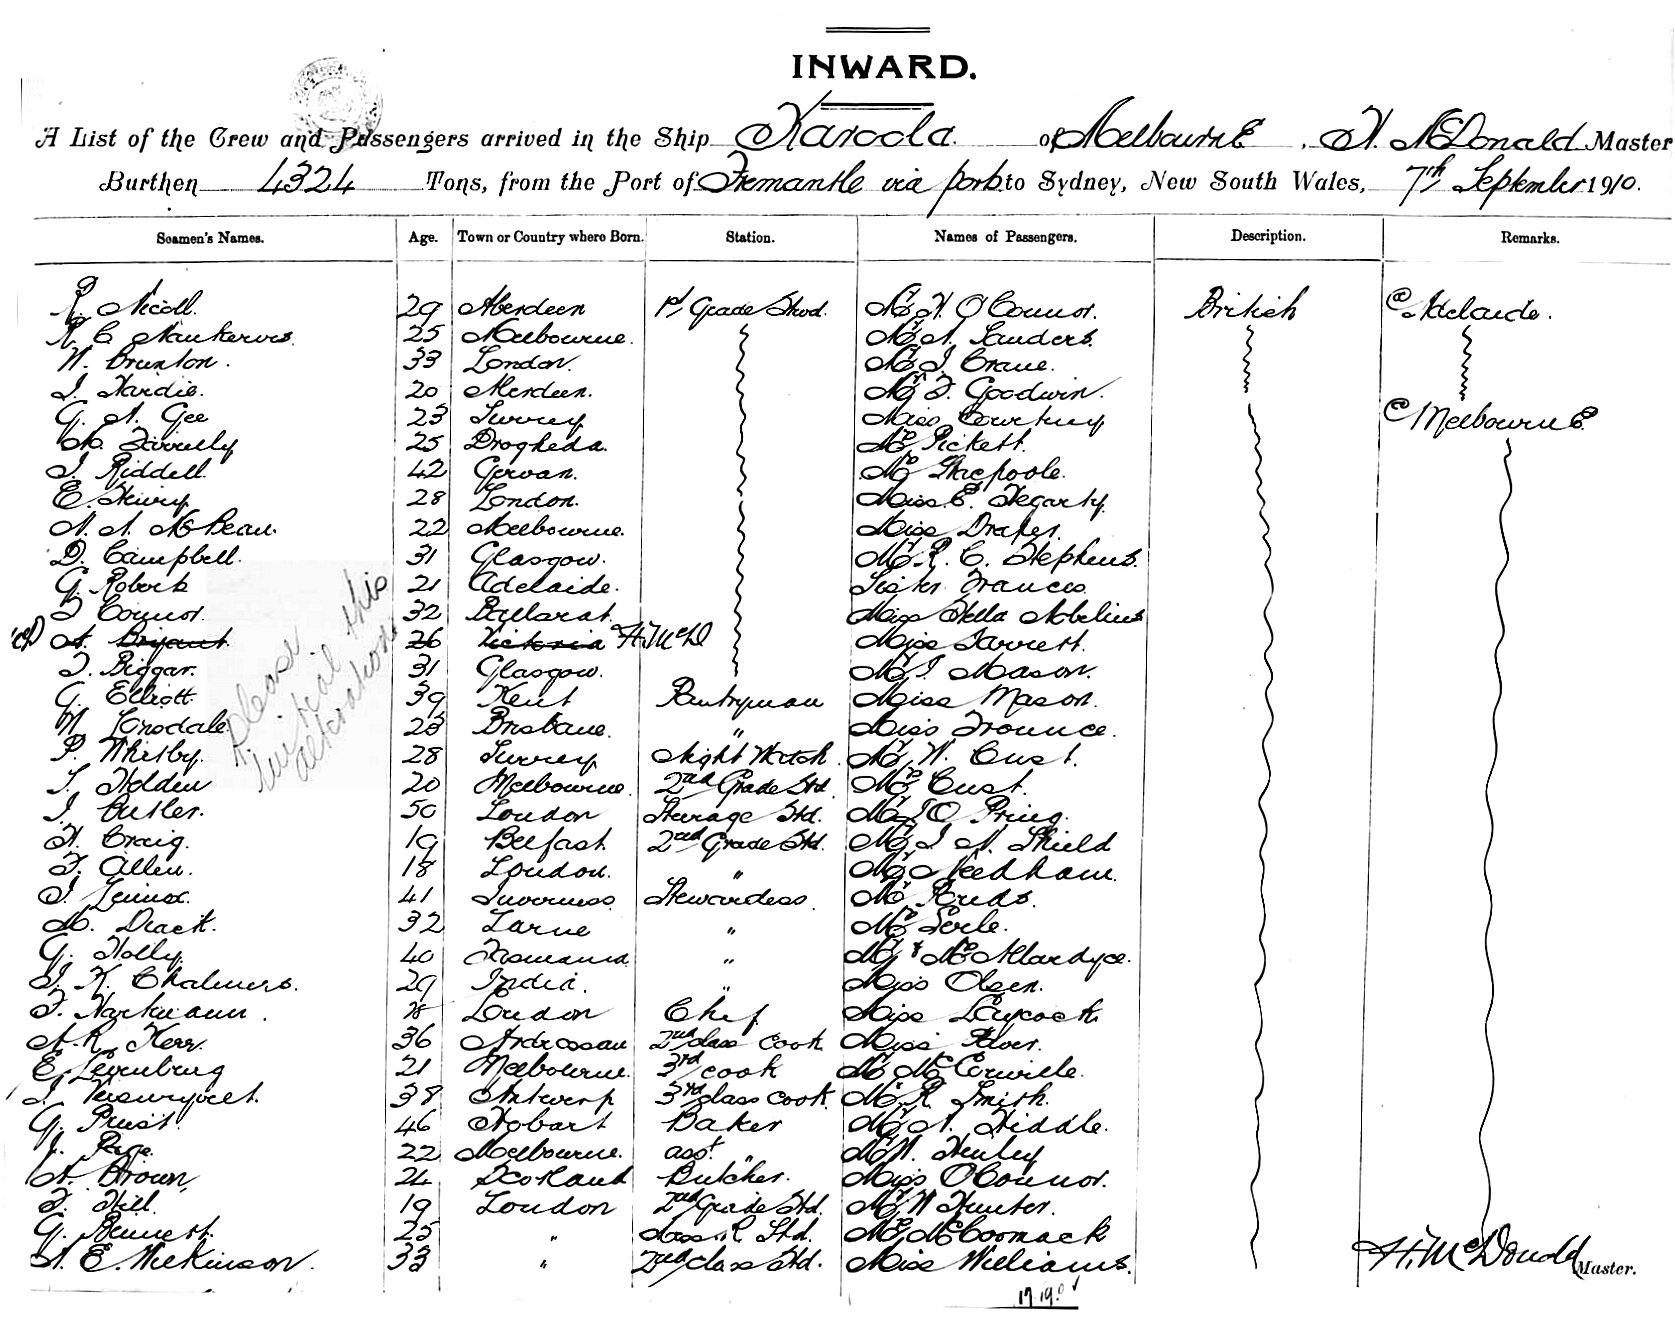 INWARD.
A List of the Crew and Passengers arrived in the Ship Karoola. of Melbourne, H. McDonald Master
Burthen 4324 Tons, from the Port of Fremantle via ports to Sydney, New South Wales, 7th September 1910.
Seamen's Names. Age. Town or Country where Born. Station. Names of Passengers. Description. Remarks.
R. Nicoll. 29 Aberdeen 1st Grade Stwd. Mr H. O'Connor. British @ Adelaide.
R C Nankervis. 25 Melbourne. Mr A. Sanders.
W. Brunton. 33 London. Mr J. Crane.
J. Hardie. 20 Aberdeen. Mr F. Goodwin.
G. A. Gee 23 Surrey Miss Courtney @ Melbourne
M. Farrelly 25 Drogheda. Mr Pickett.
J. Riddell. 42 Girvan. Mr Shacpoole.
E. 28 London. Miss E. Hegarty.
A. A. McBean. 22 Melbourne. Miss Draper.
D. Campbell. 31 Glasgow. Mr R. C. Stephens.
G. Roberts 21 Adelaide. Sister Frances.
J Connor. 32 Ballarat. Miss Stella Abelius
A. Bryant. 26 Victoria H. McD Miss Jarrett.
J. Biggar. 31 Glasgow. Mr J. Mason.
G. Elliott. 39 Kent Pantryman Miss Mason.
W. Lonsdale. 23 Brisbane. " Miss Trounce.
P. Whitby. 28 Surrey Night Watch Mr W. Cust.
T. Holden 20 Melbourne. 2nd Grade Std. Mrs Cust.
J. Cutler. 50 London Steerage Std. Mr J O Pring.
H. Craig. 19 Belfast 2nd Grade Std. Mr J. A. Shield
F. Allen. 18 London. " Mr Needham.
J. Lennox. 41 Inverness Stewardess. Mr Rudd.
M. Diack. 32 Larne " Mrs Serle.
G. Holly. 40 Tasmania. " Mr & Mrs Allardyce.
J. K. Chalmers. 29 India. " Miss Olsen.
F. Hartmann. London Chef Miss Laycock
A. R. Kerr. 36 Ardrossan 2nd class cook Miss
E. Luxenburg 21 Melbourne. 3rd cook Mr
J. 38 Antwerp 3rd class cook. Mr R Smith.
G. Priest. 46 Hobart Baker Mr A. Hiddle.
J. 22 Melbourne. asst. " Mr W. Henley
A. Brown, 24 Scotland Butcher. Miss O'Connor.
F. Hill. 19 London 2nd Grade Std. Mr W Hunter.
G. Bennett. 25 " Std. Mrs McCormack
A. E. Wilkinson. 33 " 2nd class Std. Miss Williams.
Please initial this alteration
H. McDonald Master.